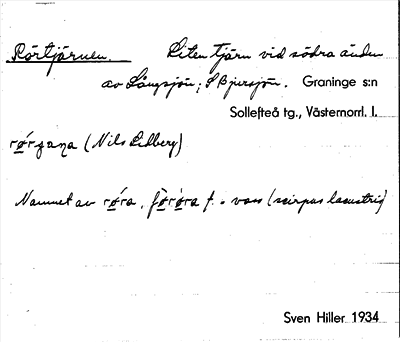 Rörtjärnen. Liten tjärn vid södra änden
av Långsjön, S Bjursjön. Graninge s:n
Sollefteå tg., Västernorrl. l.
(Nils Lidberg)
Namnet av røra, f. = vass (scirpus lacustris)
Sven Hiller 1934